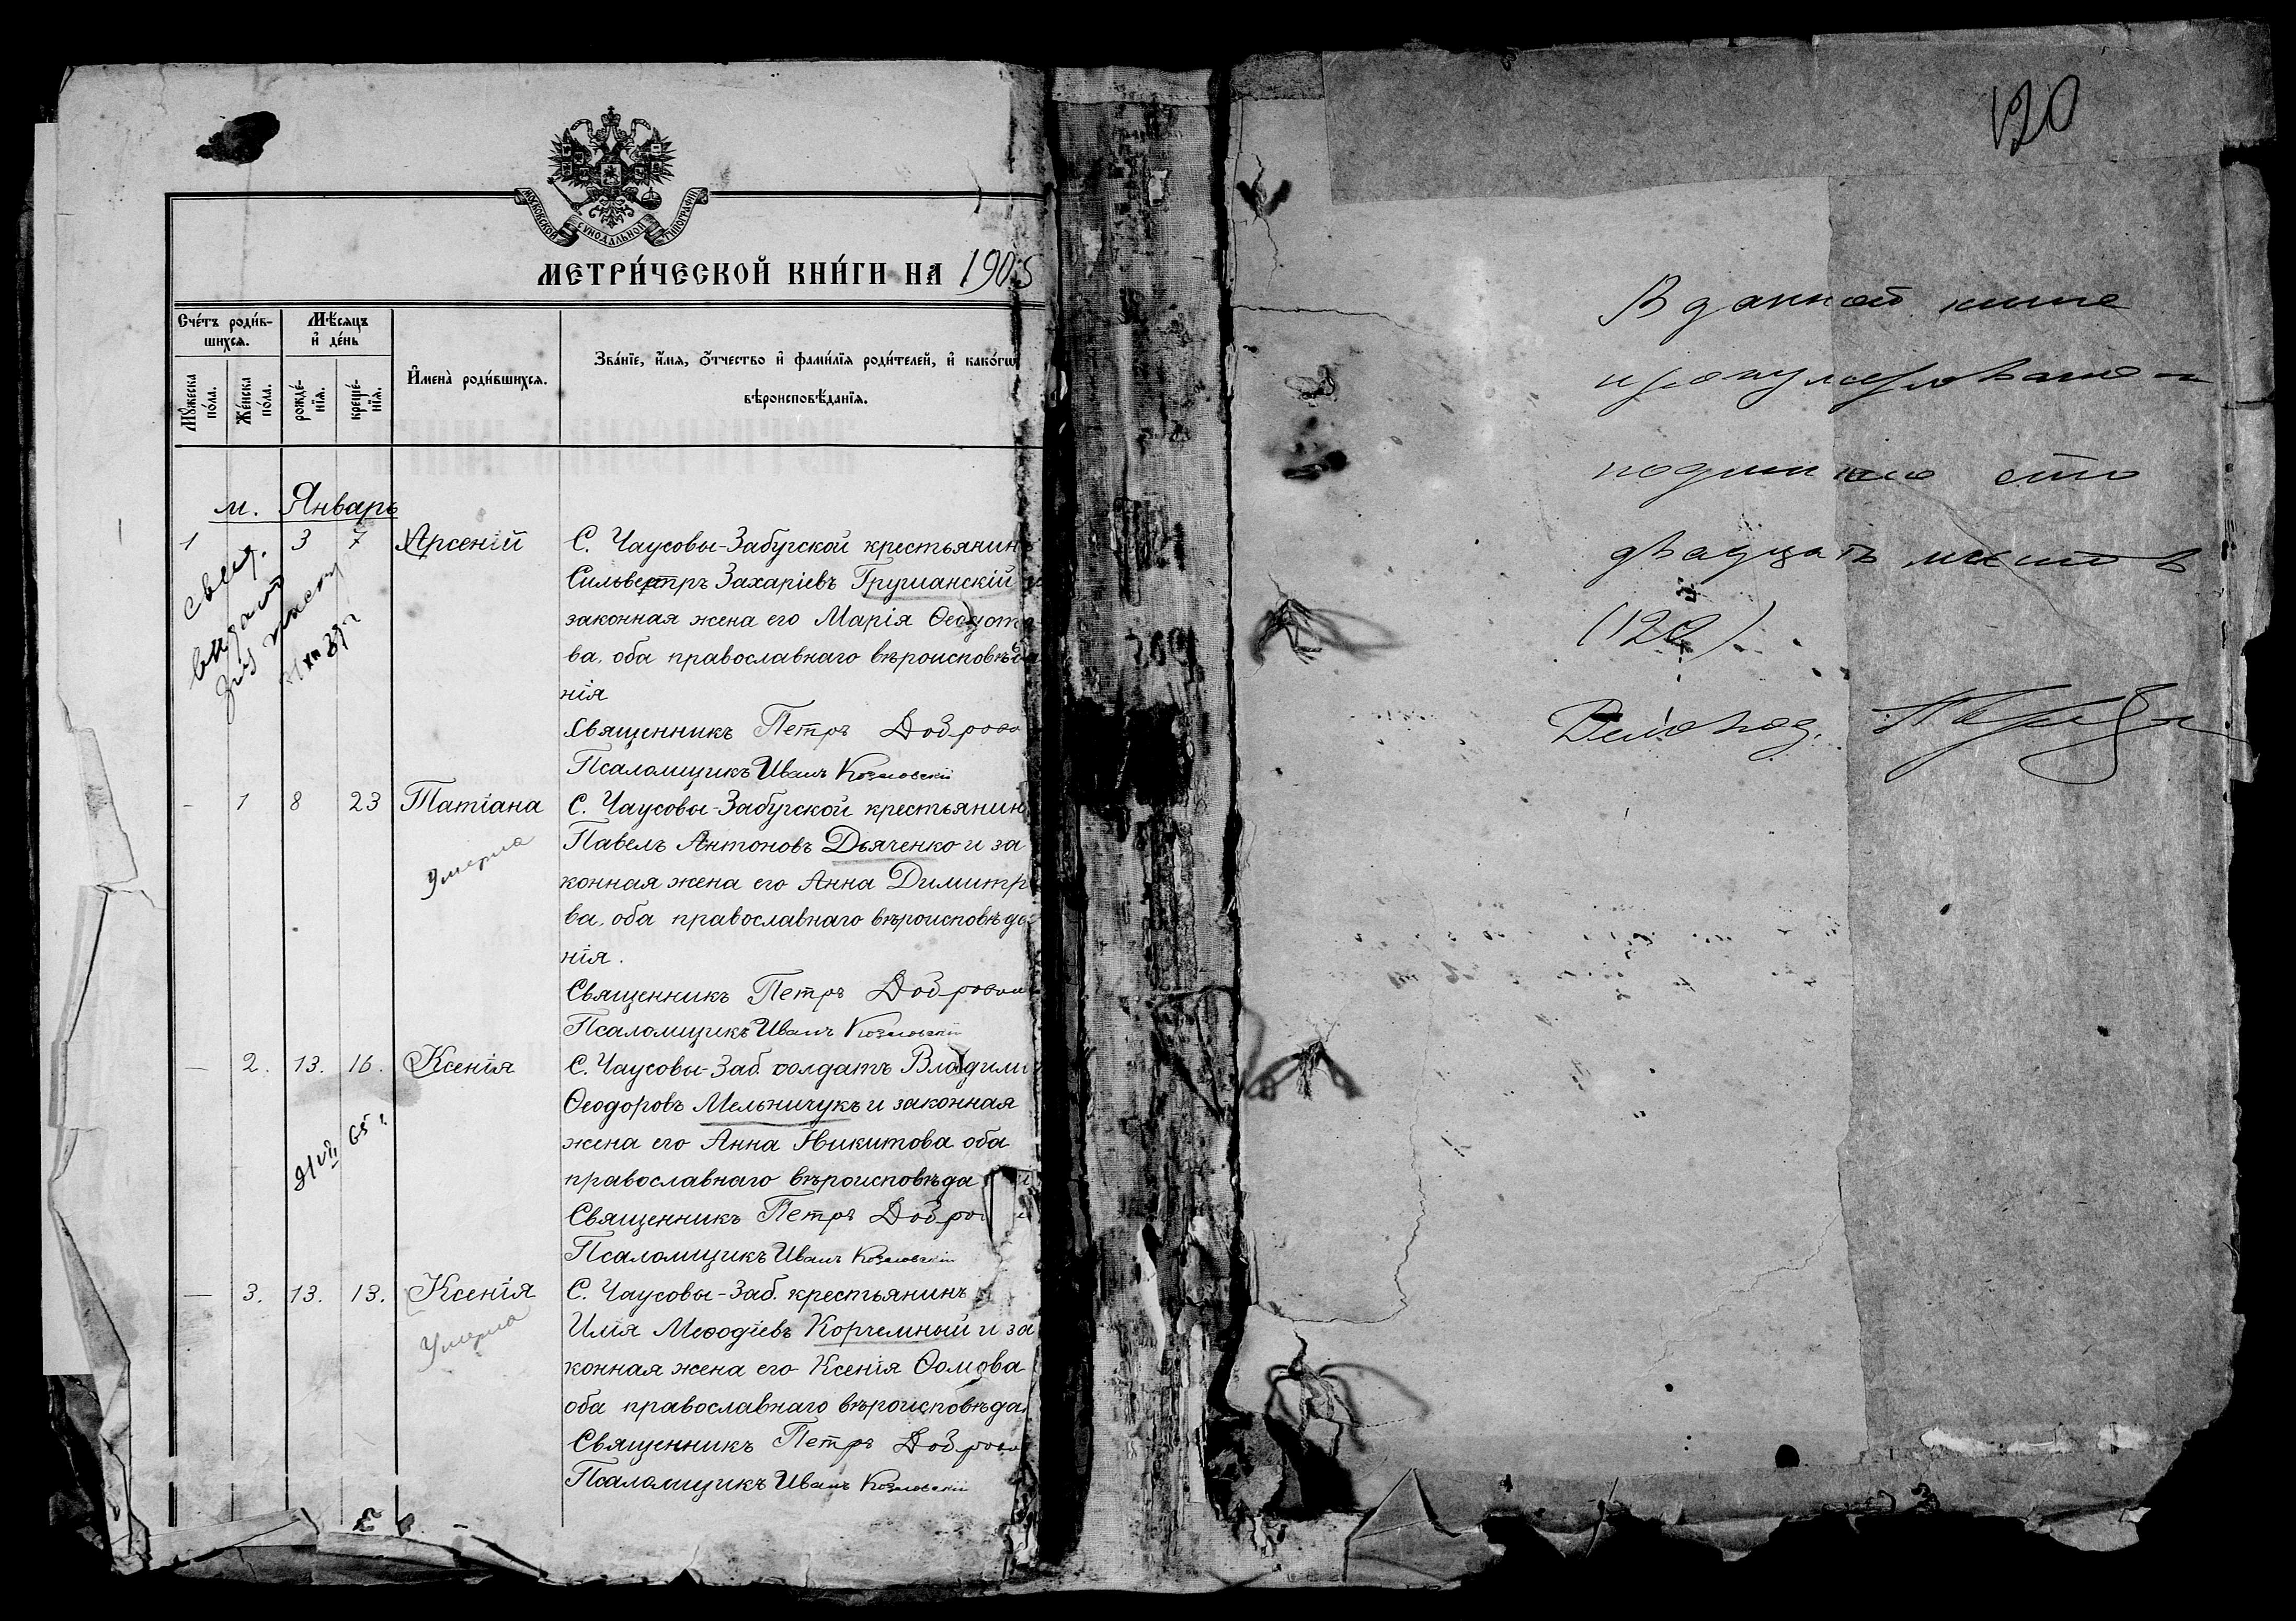 МОСКОВСКОЙ СѴНОДАЛЬНОЙ ТѴПОГРАФІИ
МЕТРИ́ЧЕСКОЙ КНИ́ГИ НА 1905
Сче́тъ роди́в-
шихсѧ.
Мꙋ́жеска
по́ла.
Же́нска
по́ла.
Мѣ́сѧцъ
и҆ де́нь
рожде́-
нїѧ.
креще́-
нїѧ.
И҆мена̀ роди́вшихсѧ.
Зва́нїе, и҆́мѧ, ѻ҆́тчество и҆ фами́лїѧ роди́телей, и҆ како́гѡ
вѣроисповѣ́данїѧ.
м. Январь
1 3 7 Арсеній
С. Чаусовы-Забугской крестьянинъ
Сильвестръ Захаріевъ Грушанскій и
законная жена его Марія Ѳеодото
ва, оба православнаго вѣроисповѣда
нія
Священникъ Петръ Доброво
Псаломщикъ Иванъ Козловскій
- 1 8 23 Татіана
умерла
С. Чаусовы-Забугской крестьянин
Павелъ Антоновъ Дьяченко и за
конная жена его Анна Димитр
ва, оба православнаго вѣроисповѣда
нія.
Священникъ Петръ Доброво
Псаломщикъ Иванъ Козловскій
— 2. 13. 16. Ксенія
65 г.
С. Чаусовы-Заб. солдатъ Владими
Ѳеодоровъ Мельничукъ и законная
жена его Анна Никитова оба
православнаго вѣроисповѣда
Священникъ Петръ Добро
Псаломщикъ Иванъ Козловскій
— 3. 13. 13. Ксенія
Умерла
С. Чаусовы-Заб. крестьянинъ
Илія Меѳодіевъ Корчемный и за
конная жена его Ксенія Ѳомова
оба православнаго вѣроисповѣда
Священникъ Петръ Доброво
Псаломщикъ Иванъ Козловскій
120
В данной книге
пронумеровано и
подшито сто
двадцать листов
(120).